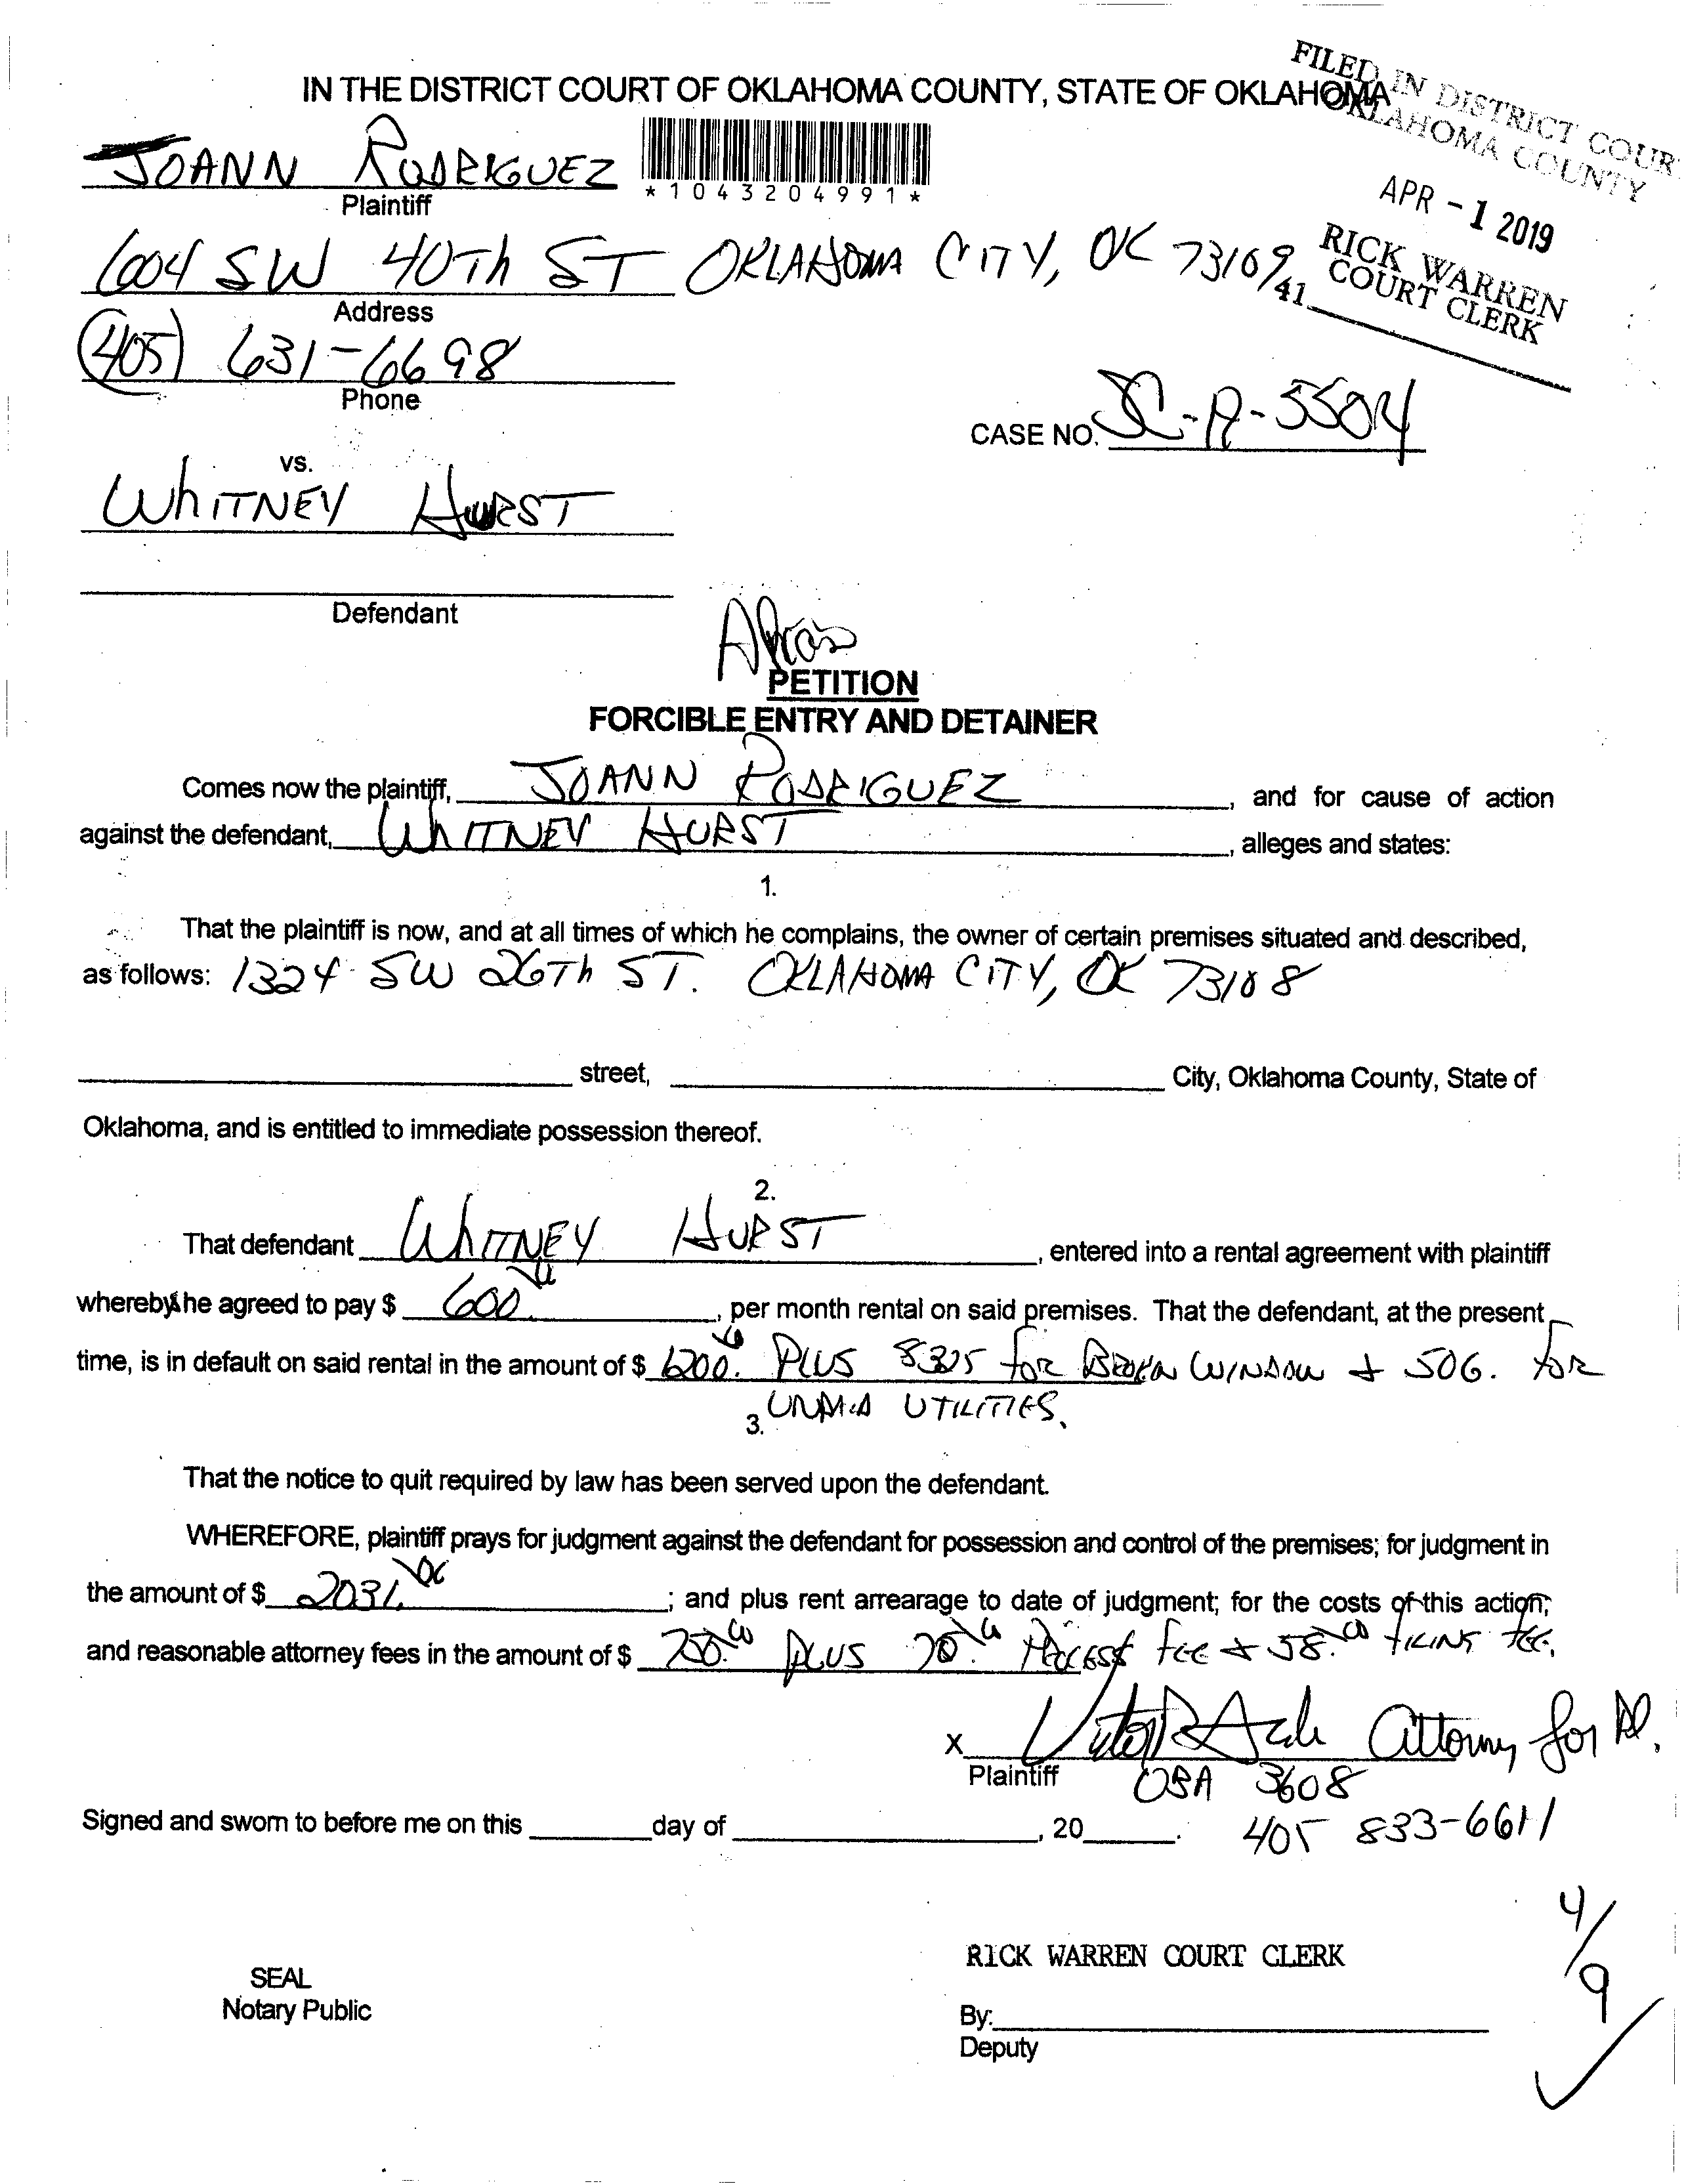 FILED IN DISTRICT COUR
OKLAHOMA COUNTY
IN THE DISTRICT COURT OF OKLAHOMA COUNTY, STATE OF OKLAHOMA
APR - 1 2019
RICK WARREN
COURT CLERK
41
JOANN RODRIGUEZ
*1043204991*
Plaintiff
604 SW 40Th ST OKLAHOMA CITY, OK 73109
Address
(405) 631-6698
Phone
CASE NO. SC-19-5504
vs.
WhITNEY HURST
Defendant
Alias
PETITION
FORCIBLE ENTRY AND DETAINER
Comes now the plaintiff, JOANN RODRIGUEZ, and for cause of action
against the defendant, WhITNEY HURST, alleges and states:
1.
That the plaintiff is now, and at all times of which he complains, the owner of certain premises situated and described,
as follows: 1324 SW 26Th ST. OKLAHOMA CITY, OK 73108
street, City, Oklahoma County, State of
Oklahoma, and is entitled to immediate possession thereof.
2.
That defendant WhITNEY HURST, entered into a rental agreement with plaintiff
whereby she agreed to pay $ 600.00, per month rental on said premises. That the defendant, at the present
time, is in default on said rental in the amount of $ 1200.00 PLUS for BROKEN WINDOW + 506. for
UNPAID UTILITIES.
3.
That the notice to quit required by law has been served upon the defendant.
WHEREFORE, plaintiff prays for judgment against the defendant for possession and control of the premises; for judgment in
the amount of $ 2031.00; and plus rent arrearage to date of judgment; for the costs of this action;
and reasonable attorney fees in the amount of $ PLUS PROCESS fee + 58.00 FILING fee.
X Attorney for Pl.
Plaintiff OBA 3608
Signed and sworn to before me on this day of , 20 .
405 833-6611
4/9
RICK WARREN COURT CLERK
SEAL
Notary Public
By:
Deputy